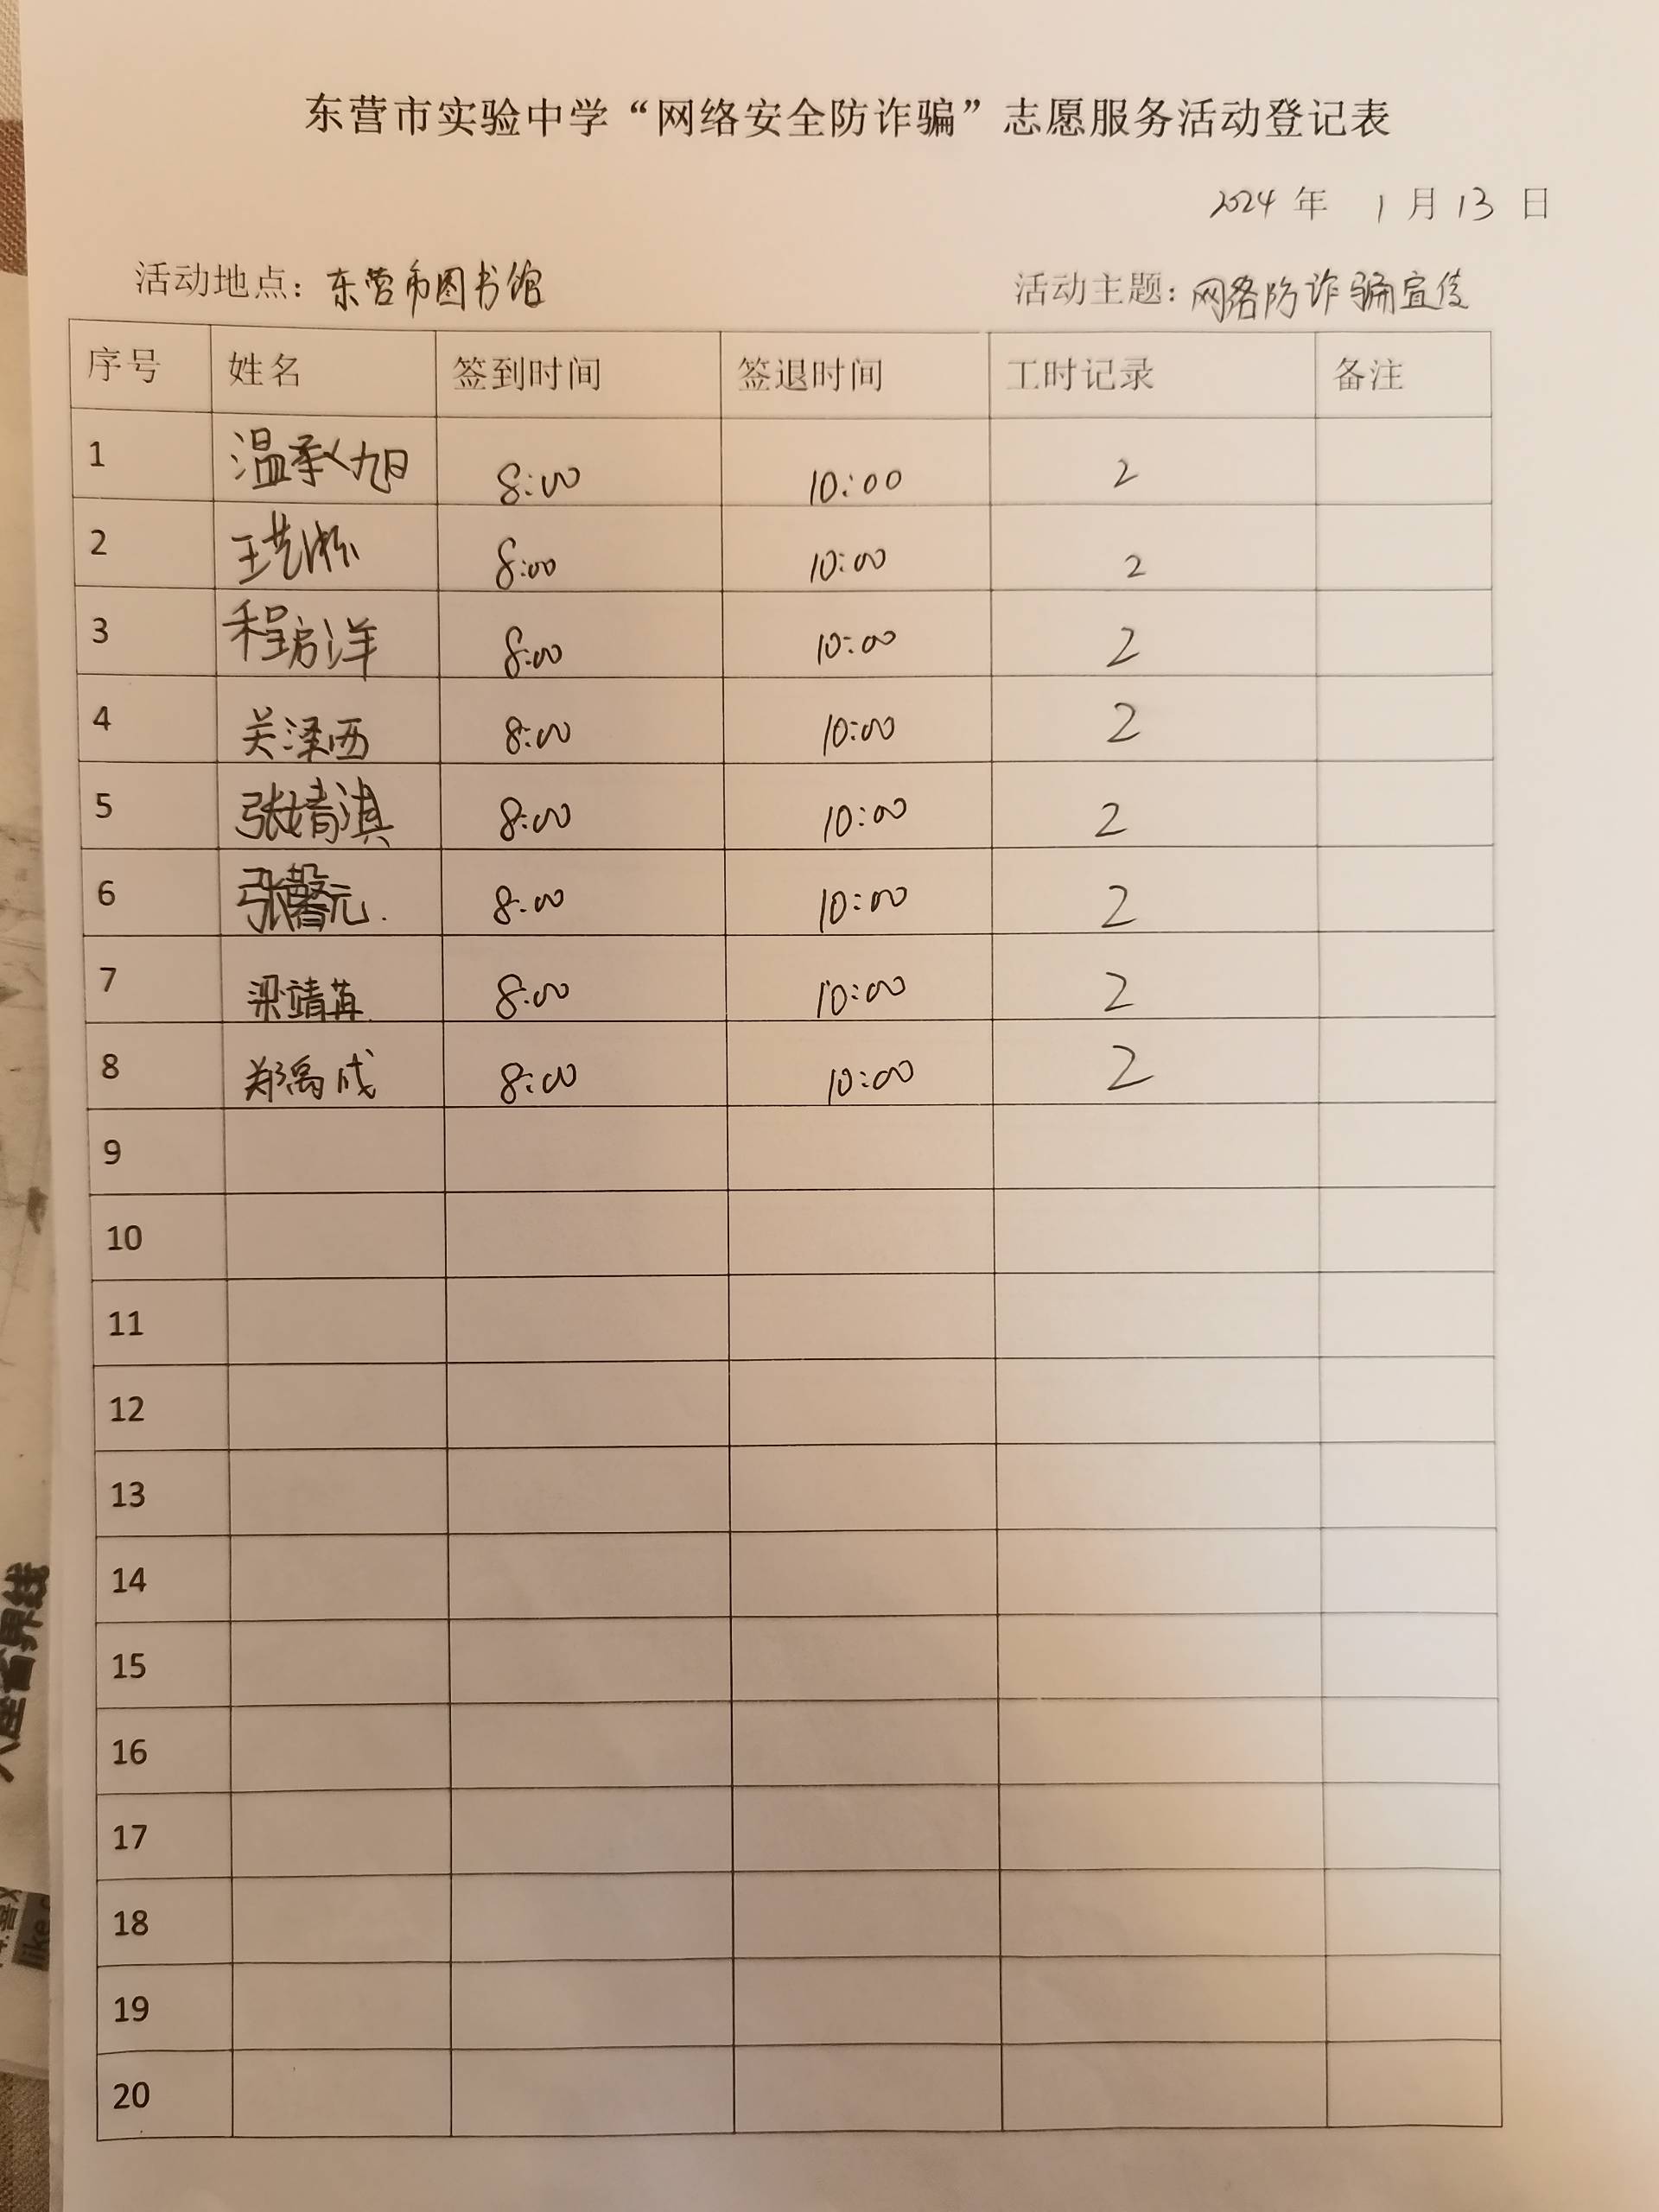 东营市实验中学“网络安全防诈骗”志愿服务活动登记表
2024 年 1 月 13 日
活动地点：东营市图书馆 活动主题：网络防诈骗宣传
序号 姓名 签到时间 签退时间 工时记录 备注
1 温承旭 8:00 10:00 2
2 王艺淞 8:00 10:00 2
3 程启洋 8:00 10:00 2
4 关泽西 8:00 10:00 2
5 张婧淇 8:00 10:00 2
6 张馨元. 8:00 10:00 2
7 梁靖苒 8:00 10:00 2
8 郑禹成 8:00 10:00 2
9
10
11
12
13
14
15
16
17
18
19
20
省界线
like